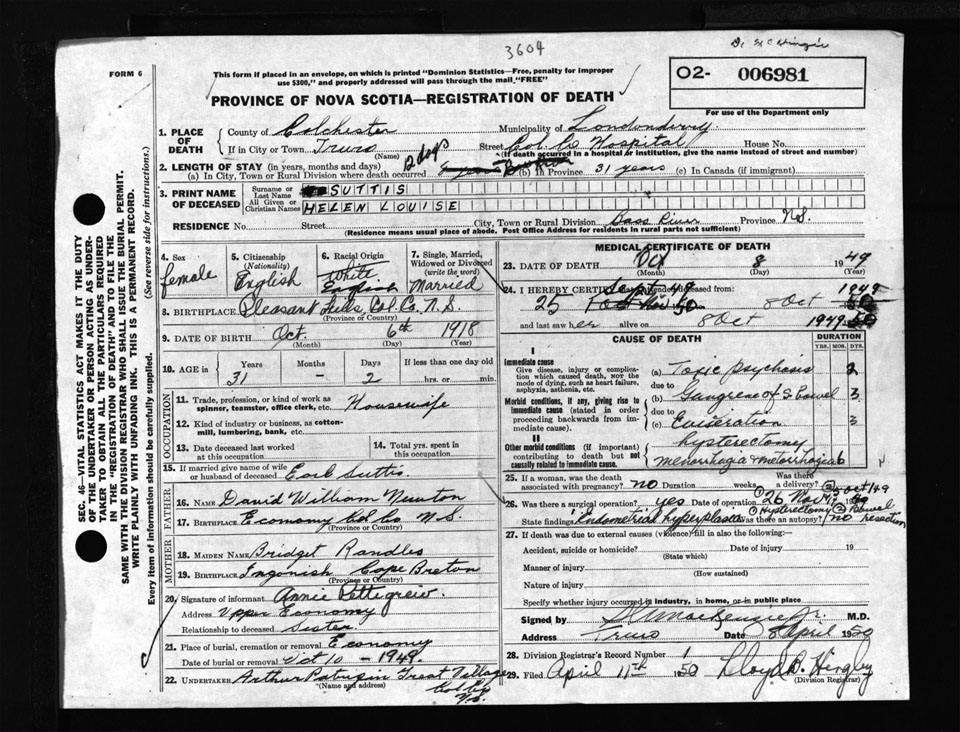 3604
FORM 6
This form if placed in an envelope, on which is printed "Dominion Statistics—Free, penalty for improper
use $300," and properly addressed will pass through the mail, "FREE"
O2- 006981
For use of the Department only
PROVINCE OF NOVA SCOTIA—REGISTRATION OF DEATH
1. PLACE OF DEATH
County of Colchester Municipality of Londonderry
If in City or Town Truro (Name) Street Col. Co Hospital House No.
(If death occurred in a hospital or institution, give the name instead of street and number)
2. LENGTH OF STAY (in years, months and days)
(a) In City, Town or Rural Division where death occurred 12 days (b) In Province 31 years (c) In Canada (if immigrant)
3. PRINT NAME OF DECEASED
Surname or Last Name SUTTIS
All Given or Christian Names HELEN LOUISE
RESIDENCE No. Street City, Town or Rural Division Bass River Province N.S.
(Residence means usual place of abode. Post Office Address for residents in rural parts not sufficient)
4. Sex female
5. Citizenship (Nationality) English
6. Racial Origin White English
7. Single, Married, Widowed or Divorced (write the word) Married
8. BIRTHPLACE Pleasant Hills, Col. Co. N.S.
(Province or Country)
9. DATE OF BIRTH Oct. 6th 1918
(Month) (Day) (Year)
10. AGE in Years Months Days If less than one day old
31 - 2 hrs. or min.
OCCUPATION
11. Trade, profession, or kind of work as spinner, teamster, office clerk, etc. Housewife
12. Kind of industry or business, as cotton-mill, lumbering, bank, etc.
13. Date deceased last worked at this occupation
14. Total yrs. spent in this occupation
15. If married give name of wife or husband of deceased Earl Suttis
FATHER
16. NAME David William Newton
17. BIRTHPLACE Economy Col Co N.S.
(Province or Country)
MOTHER
18. MAIDEN NAME Bridget Randles
19. BIRTHPLACE Ingonish Cape Breton
(Province or Country)
20. Signature of informant Annie Pettegrew.
Address Upper Economy
Relationship to deceased Sister
21. Place of burial, cremation or removal Economy
Date of burial or removal Oct 10 - 1949.
22. UNDERTAKER Arthur Patriquin Great Village
(Name and address) Col Co N.S.
MEDICAL CERTIFICATE OF DEATH
23. DATE OF DEATH Oct 8 1949
(Month) (Day) (Year)
24. I HEREBY CERTIFY that I attended deceased from:
25 Sept 49 8 Oct 1949
and last saw her alive on 8 Oct 1949
CAUSE OF DEATH
DURATION
YRS. MOS. DYS.
I
Immediate cause
Give disease, injury or complication which caused death, NOT the mode of dying, such as heart failure, asphyxia, asthenia, etc.
(a) Toxic Psychosis 2
due to
Morbid conditions, if any, giving rise to immediate cause (stated in order proceeding backwards from immediate cause).
(b) Gangrene of S bowel 3
due to
(c) Evisceration 3
II
Other morbid conditions (if important) contributing to death but not causally related to immediate cause.
hysterectomy
menorrhagia & metorrhagia 6
25. If a woman, was the death associated with pregnancy? NO Duration weeks Was there a delivery?
26. Was there a surgical operation? yes Date of operation
State findings Endometrial hyperplasia ① Hysterectomy ② Bowel resection Was there an autopsy? no
27. If death was due to external causes (violence) fill in also the following:
Accident, suicide or homicide? (State which) Date of injury 19
Manner of injury (How sustained)
Nature of injury
Specify whether injury occurred in industry, in home, or in public place
Signed by M.D.
Address Truro Date 8 April 1950
28. Division Registrar's Record Number 1
29. Filed April 11th 1950 Lloyd D. Hingley
(Division Registrar)
SEC. 46—VITAL STATISTICS ACT MAKES IT THE DUTY
OF THE UNDERTAKER OR PERSON ACTING AS UNDER-
TAKER TO OBTAIN ALL THE PARTICULARS REQUIRED
IN THE "REGISTRATION OF DEATH" AND TO FILE THE
SAME WITH THE DIVISION REGISTRAR WHO SHALL ISSUE THE BURIAL PERMIT.
WRITE PLAINLY WITH UNFADING INK. THIS IS A PERMANENT RECORD.
Every item of information should be carefully supplied. (See reverse side for instructions.)